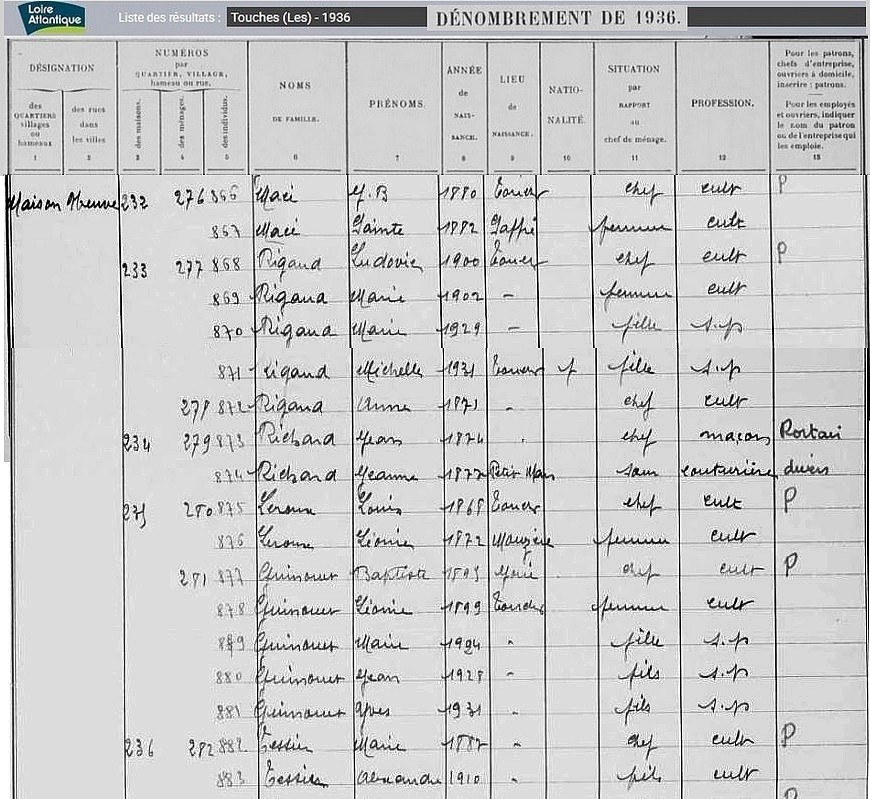 Loire Atlantique
Liste des résultats : Touches (Les) - 1936
DÉNOMBREMENT DE 1936.
DÉSIGNATION
des QUARTIERS villages ou hameaux
1
des rues dans les villes
2
NUMÉROS
par QUARTIER, VILLAGE, hameau ou rue.
des maisons.
3
des ménages.
4
des individus.
5
NOMS DE FAMILLE.
6
PRÉNOMS.
7
ANNÉE de NAISSANCE.
8
LIEU de NAISSANCE.
9
NATIONALITÉ.
10
SITUATION par RAPPORT au chef de ménage.
11
PROFESSION.
12
Pour les patrons, chefs d'entreprise, ouvriers à domicile, inscrire : patrons.
Pour les employés et ouvriers, indiquer le nom du patron ou de l'entreprise qui les emploie.
13
Maison Neuve 232 276 866 Macé 1880 chef cult P
867 Macé Sainte 1882 Saffré femme cult
233 277 868 Rigaud Ludovic 1900 chef cult P
869 Rigaud Marie 1902 - femme cult
870 Rigaud Marie 1929 - fille s.p
871 Rigaud Michelle 1931 f fille s.p
278 872 Rigaud Anne 1871 " chef cult
234 279 873 Richard Jean 1874 " chef maçon
874 Richard Jeanne 1877 Petit Mars couturière divers
235 280 875 Leroux Louis 1868 chef cult P
876 Leroux Léonie 1872 femme cult
281 877 Guinouet Baptiste chef cult P
878 Guinouet Léonie 1899 femme cult
879 Guinouet Marie 1924 " fille s.p
880 Guinouet Jean 1928 " fils s.p
881 Guinouet Yves 1931 " fils s.p
236 282 882 Tessier Marie 1887 " chef cult P
883 Tessier Alexandre 1910 " fils cult